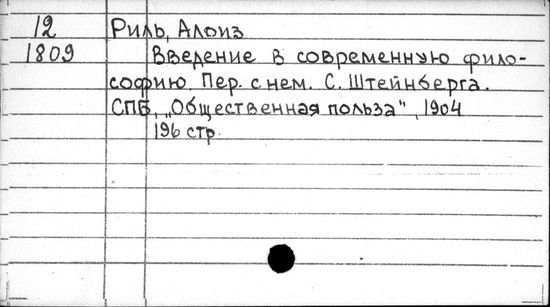 12 Риль, Алоиз
1809 Введение в современную фило-
софию. Пер. с нем. С. Штейнберга.
СПБ, „Общественная польза", 1904
196 стр.